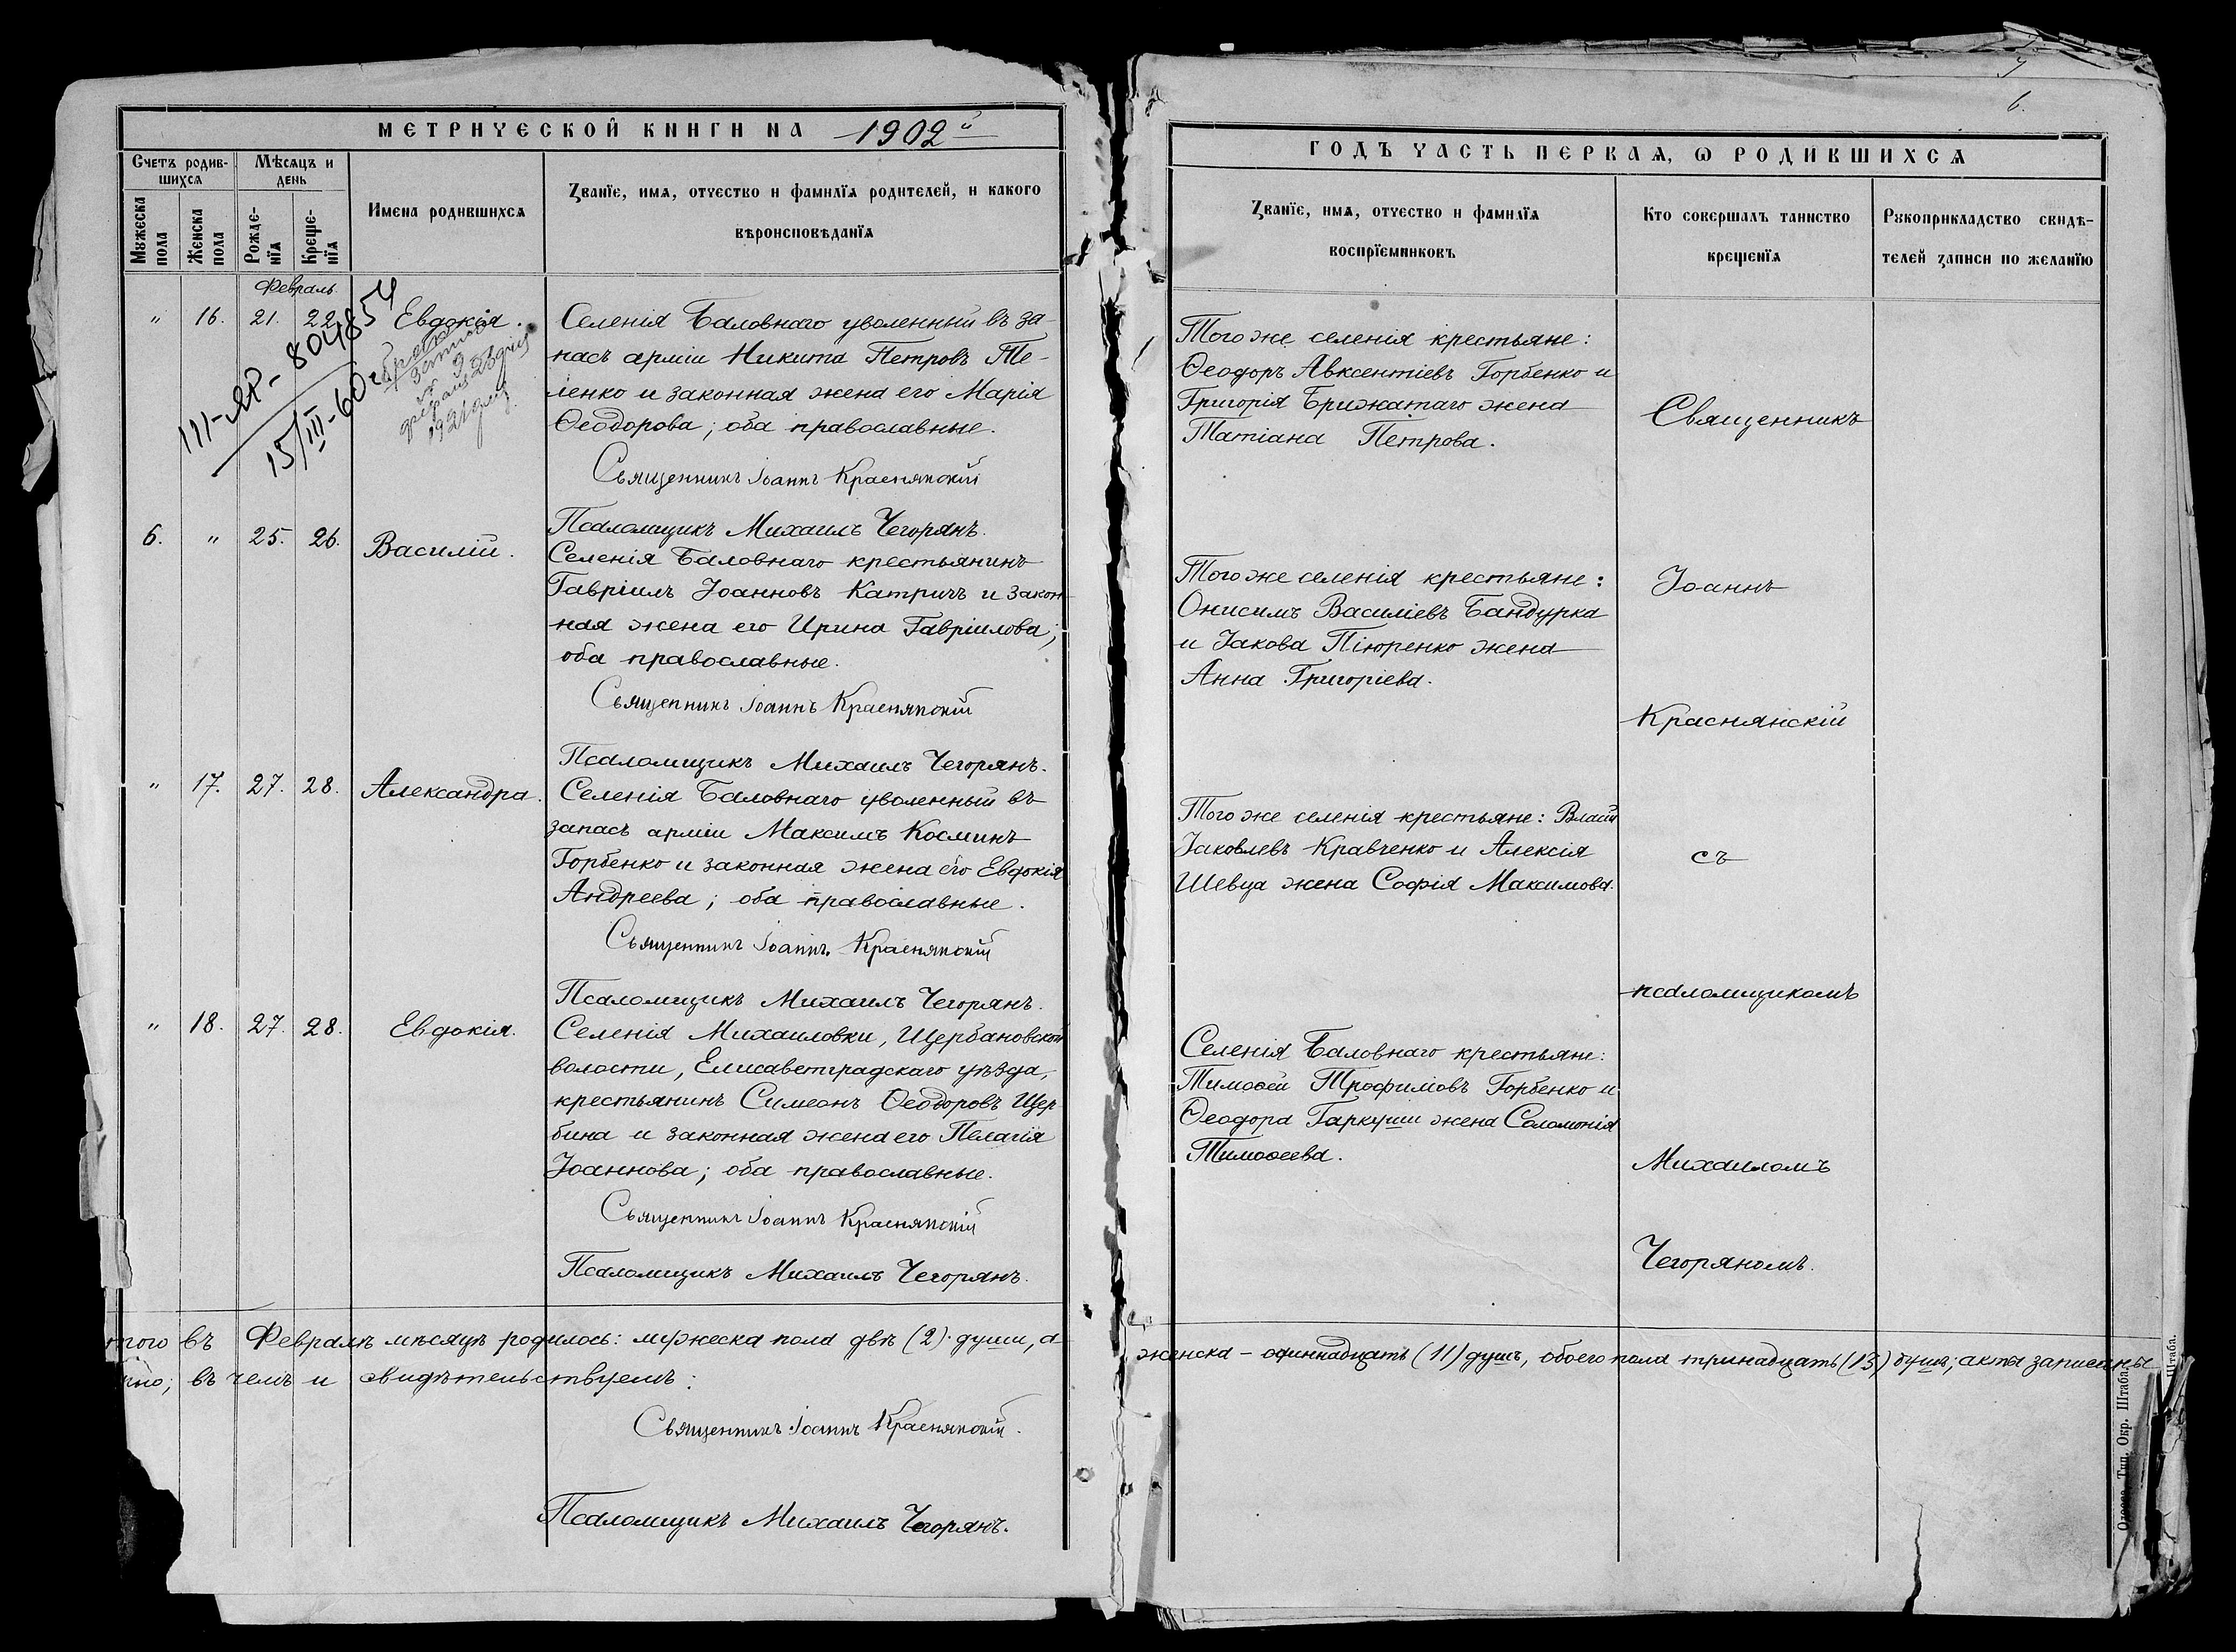 МЕТРИЧЕСКОЙ КНИГИ НА 1902й
Счетъ родив-
шихся
Мѣсяцъ и
день
Мужеска
пола
Женска
пола
Рожде-
нїя
Креще-
нїя
Имена родившихся
Званїе, имя, отчество и фамилїя родителей, и какого
вѣроисповѣданїя
Февраль.
" 16. 21. 22. Евдокія.
III-ЯР-804854
15/III-60г
Селенія Баловнаго уволенный въ за-
пасъ арміи Никита Петровъ Те-
ленко и законная жена его Марія
Ѳеодорова; оба православные.
Священникъ Іоаннъ Краснянскій
Псаломщикъ Михаилъ Чегорянъ.
6. " 25. 26. Василій.
Селенія Баловнаго крестьянинъ
Гавріилъ Іоанновъ Катричъ и закон-
ная жена его Ирина Гавріилова;
оба православные.
Священникъ Іоаннъ Краснянскій
Псаломщикъ Михаилъ Чегорянъ.
" 17. 27. 28. Александра.
Селенія Баловнаго уволенный въ
запасъ арміи Максимъ Косминъ
Горбенко и законная жена его Евдокія
Андреева; оба православные.
Священникъ Іоаннъ Краснянскій
Псаломщикъ Михаилъ Чегорянъ.
" 18. 27. 28. Евдокія.
Селенія Михаиловки, Щербановской
волости, Елисаветградскаго уѣзда,
крестьянинъ Симеонъ Ѳеодоровъ Щер
бина и законная жена его Пелагія
Іоаннова; оба православные.
Священникъ Іоаннъ Краснянскій
Псаломщикъ Михаилъ Чегорянъ.
того въ Февралѣ мѣсяцѣ родилось: мужеска пола двѣ (2) души, а
въ чемъ и свидѣтельствуемъ:
Священникъ Іоаннъ Краснянскій.
Псаломщикъ Михаилъ Чегорянъ.
6.
ГОДЪ ЧАСТЬ ПЕРВАЯ, Ѡ РОДИВШИХСЯ
Званїе, имя, отчество и фамилїя
воспрїемниковъ
Кто совершалъ таинство
крещенїя
Рукоприкладство свидѣ-
телей записи по желанїю
Того же селенія крестьяне:
Ѳеодоръ Авксентіевъ Горбенко и
Григорія Брижатаго жена
Татіана Петрова.
Того же селенія крестьяне:
Онисимъ Василіевъ Бандурка
и Іакова Піюренко жена
Анна Григоріева.
Того же селенія крестьяне:
Іаковлевъ Кравченко и Алексія
Шевца жена Софія Максимова.
Селенія Баловнаго крестьяне:
Тимоѳей Трофимовъ Горбенко и
Ѳеодора Гаркуши жена Саломонія
Тимоѳеева.
Священникъ
Іоаннъ
Краснянскій
съ
псаломщикомъ
Михаиломъ
Чегоряномъ.
женска - одиннадцать (11) душъ, обоего пола тринадцать (13) душъ; акты записаны
Одесса. Тип. Окр. Штаба.
Штаба.